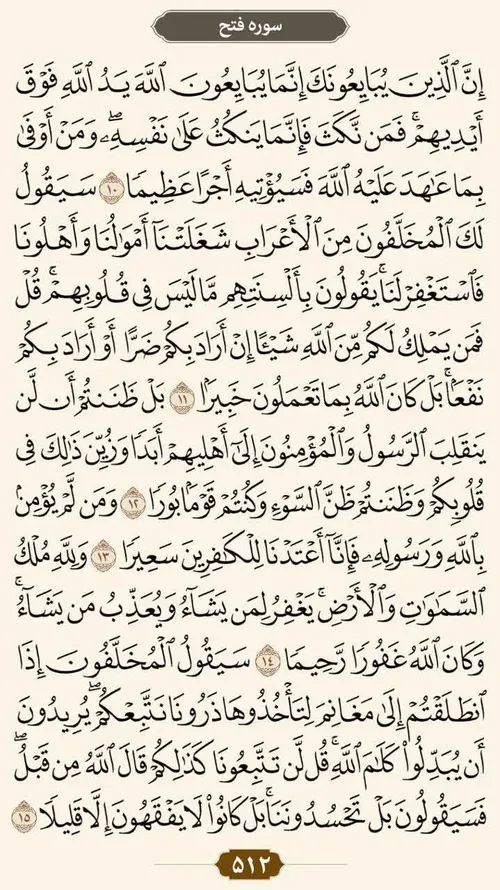 سوره فتح
إِنَّ ٱلَّذِينَ يُبَايِعُونَكَ إِنَّمَا يُبَايِعُونَ ٱللَّهَ يَدُ ٱللَّهِ فَوْقَ
أَيْدِيهِمْۚ فَمَن نَّكَثَ فَإِنَّمَا يَنكُثُ عَلَىٰ نَفْسِهِۦۖ وَمَنْ أَوْفَىٰ
بِمَا عَٰهَدَ عَلَيْهُ ٱللَّهَ فَسَيُؤْتِيهِ أَجْرًا عَظِيمًا ١٠ سَيَقُولُ
لَكَ ٱلْمُخَلَّفُونَ مِنَ ٱلْأَعْرَابِ شَغَلَتْنَآ أَمْوَٰلُنَا وَأَهْلُونَا
فَٱسْتَغْفِرْ لَنَاۚ يَقُولُونَ بِأَلْسِنَتِهِم مَّا لَيْسَ فِى قُلُوبِهِمْۚ قُلْ
فَمَن يَمْلِكُ لَكُم مِّنَ ٱللَّهِ شَيْـًٔا إِنْ أَرَادَ بِكُمْ ضَرًّا أَوْ أَرَادَ بِكُمْ
نَفْعًۢاۚ بَلْ كَانَ ٱللَّهُ بِمَا تَعْمَلُونَ خَبِيرًۢا ١١ بَلْ ظَنَنتُمْ أَن لَّن
يَنقَلِبَ ٱلرَّسُولُ وَٱلْمُؤْمِنُونَ إِلَىٰٓ أَهْلِيهِمْ أَبَدًا وَزُيِّنَ ذَٰلِكَ فِى
قُلُوبِكُمْ وَظَنَنتُمْ ظَنَّ ٱلسَّوْءِ وَكُنتُمْ قَوْمًۢا بُورًا ١٢ وَمَن لَّمْ يُؤْمِنۢ
بِٱللَّهِ وَرَسُولِهِۦ فَإِنَّآ أَعْتَدْنَا لِلْكَٰفِرِينَ سَعِيرًا ١٣ وَلِلَّهِ مُلْكُ
ٱلسَّمَٰوَٰتِ وَٱلْأَرْضِۚ يَغْفِرُ لِمَن يَشَآءُ وَيُعَذِّبُ مَن يَشَآءُۚ
وَكَانَ ٱللَّهُ غَفُورًا رَّحِيمًا ١٤ سَيَقُولُ ٱلْمُخَلَّفُونَ إِذَا
ٱنطَلَقْتُمْ إِلَىٰ مَغَانِمَ لِتَأْخُذُوهَا ذَرُونَا نَتَّبِعْكُمْۖ يُرِيدُونَ
أَن يُبَدِّلُوا۟ كَلَٰمَ ٱللَّهِۚ قُل لَّن تَتَّبِعُونَا كَذَٰلِكُمْ قَالَ ٱللَّهُ مِن قَبْلُۖ
فَسَيَقُولُونَ بَلْ تَحْسُدُونَنَاۚ بَلْ كَانُوا۟ لَا يَفْقَهُونَ إِلَّا قَلِيلًا ١٥
۵۱۲